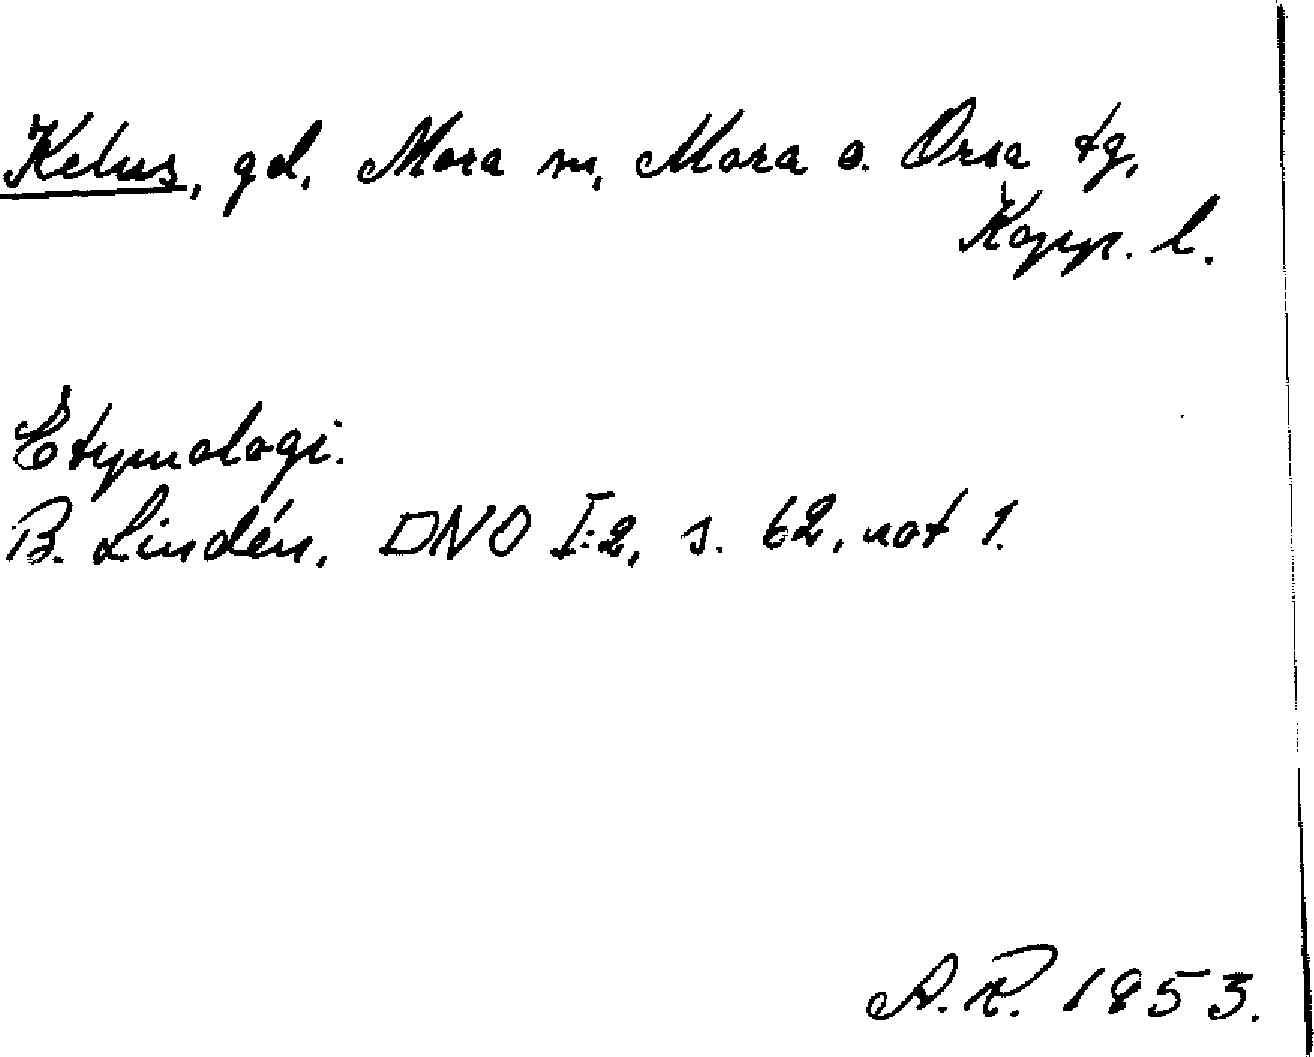 Kelus, gd, Mora sn, Mora o. Orsa tg,
Kopp. l.
Etymologi.
B. Lindén, DNO I:2, s. 62, not 1.
A.R. 1953.